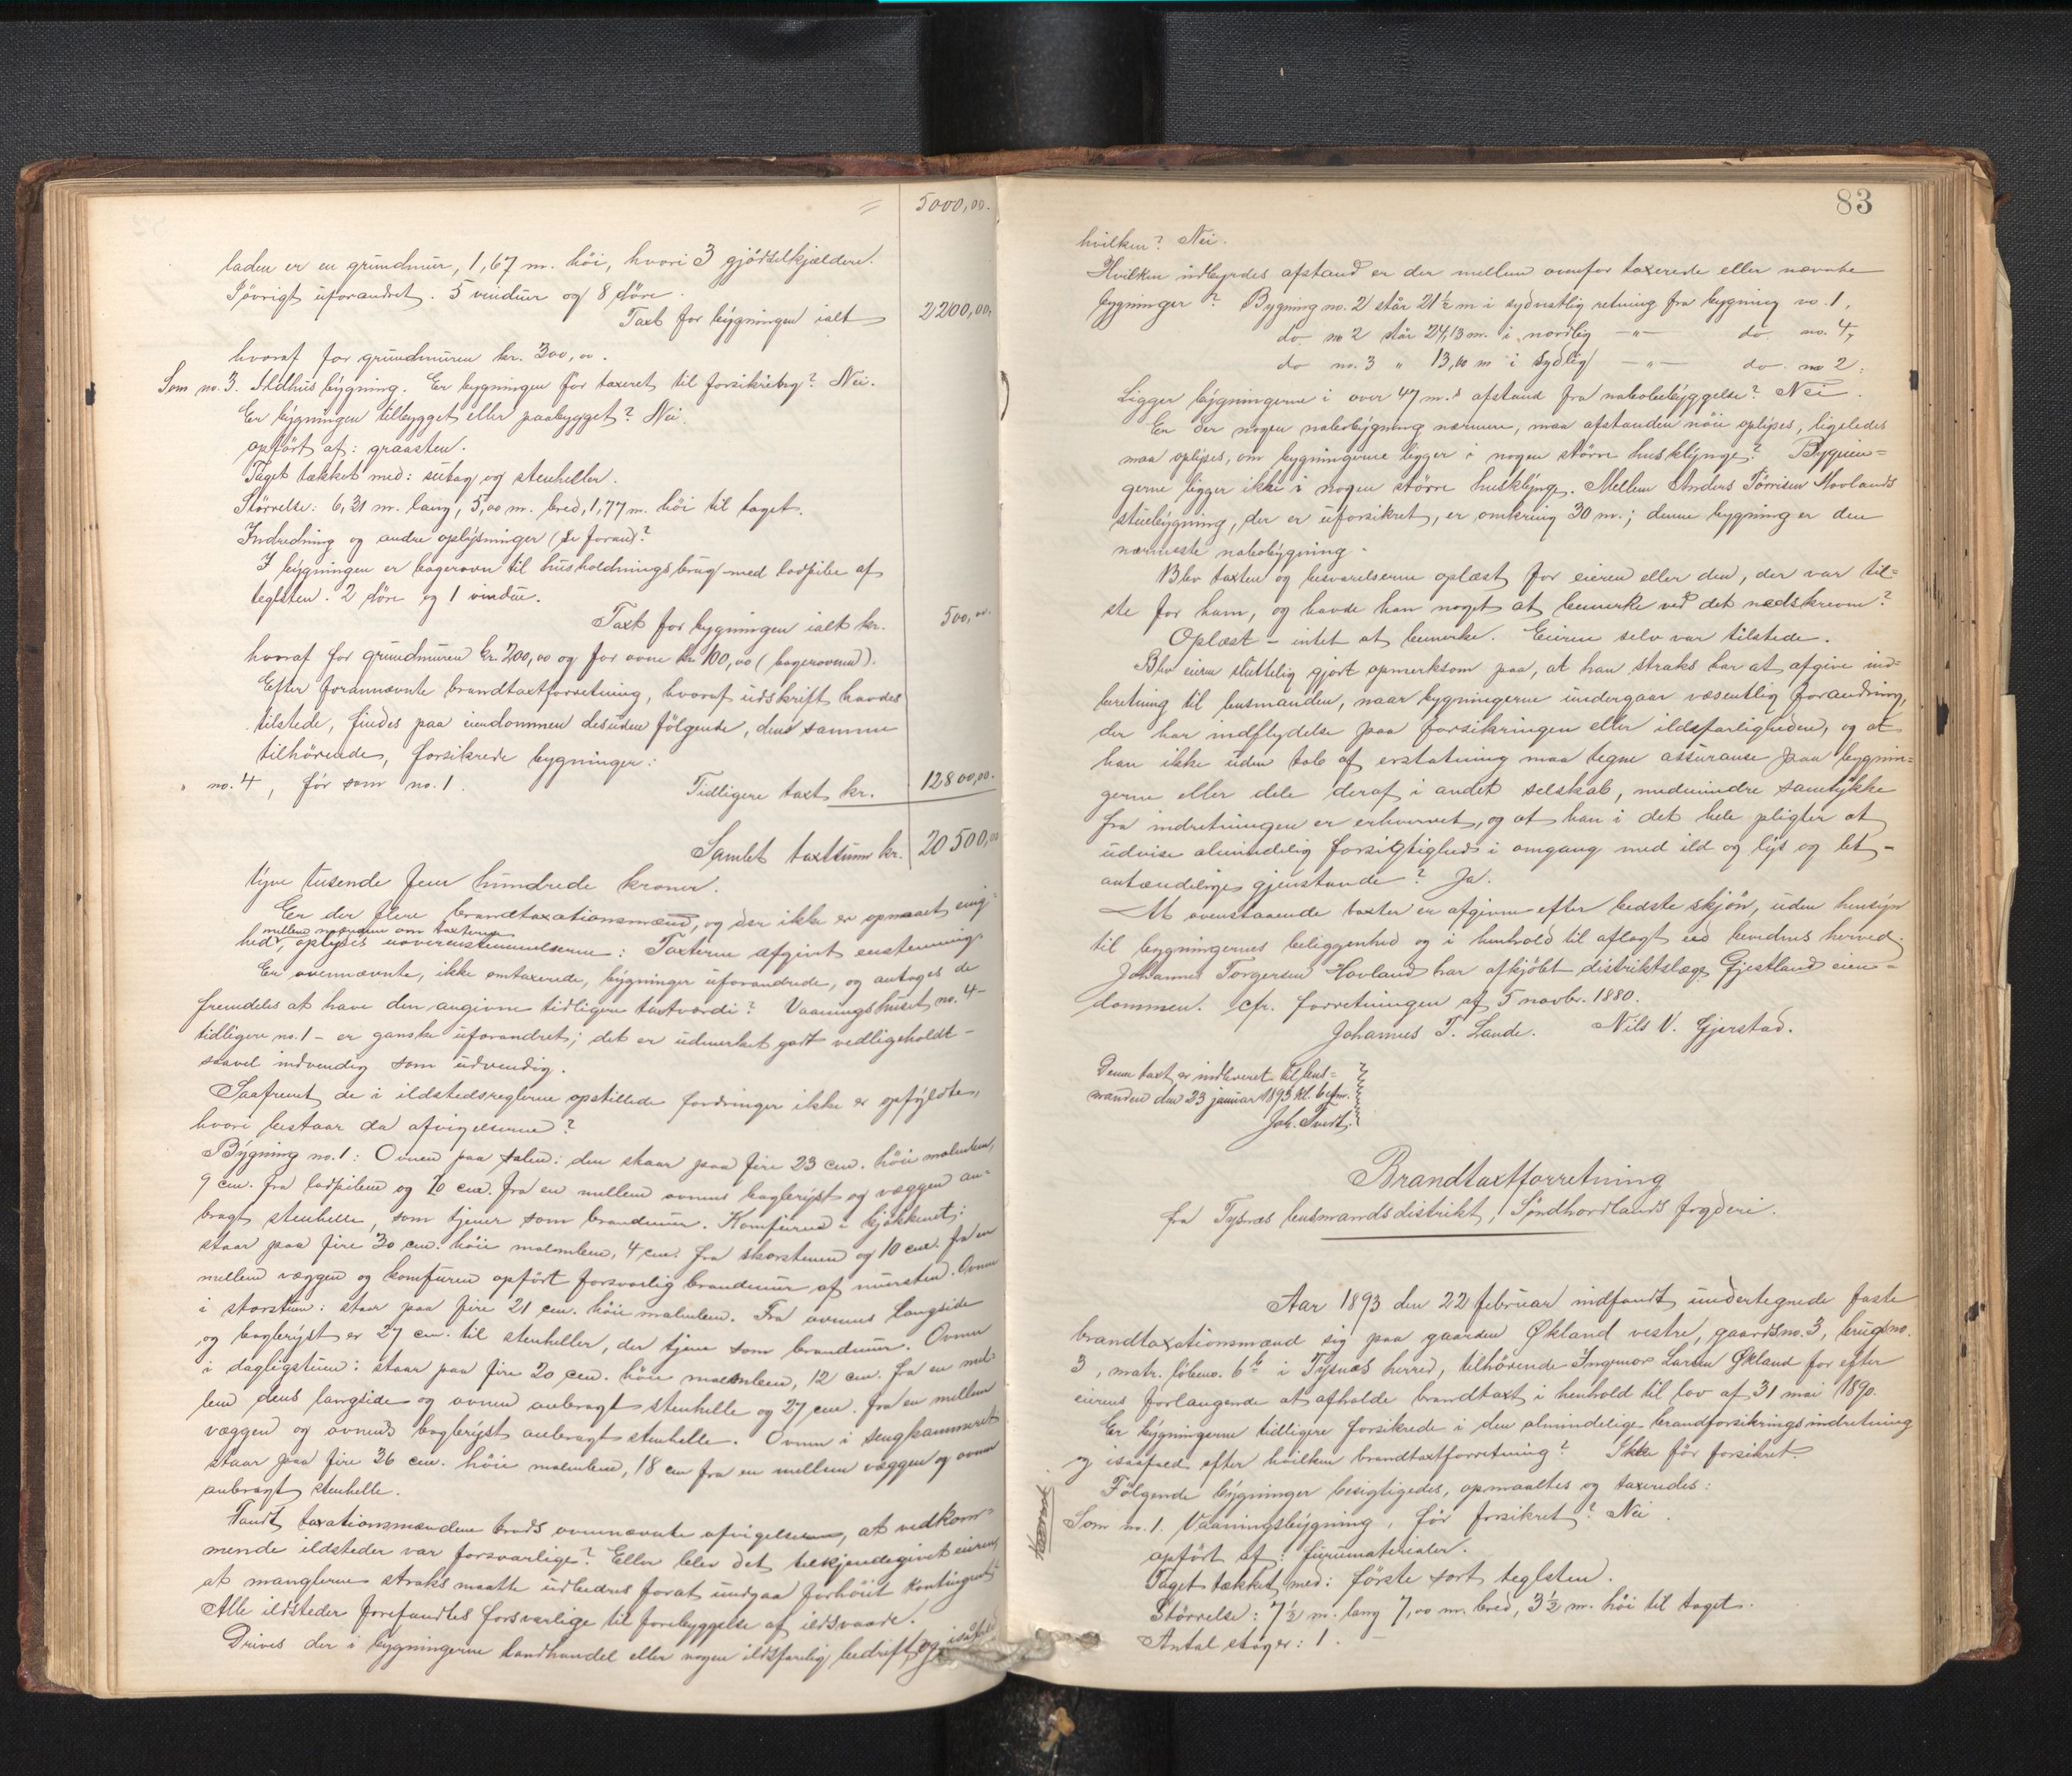 = 5000,00.
laden er en grundmur, 1,67 m. höi, hvori 3 gjödselkjældere.
Iövrigt uforandret. 5 vinduer og 8 döre.
Taxt for bygningen ialt 2200,00.
hvoraf for grundmuren kr. 300,00.
Som no. 3. Ildhusbygning. Er bygningen för taxeret til forsikring? Nei.
Er bygningen tilbygget eller paabygget? Nei.
opfört af: graasten.
Taget tækket med: sutag og stenheller.
Störrelse: 6,31 m. lang, 5,00 m. bred, 1,77 m. höi til taget.
Indredning og andre oplysninger (se foran)?
I bygningen er bagerovn til husholdningsbrug med ladpibe af
teglsten. 2 döre og 1 vindue.
Taxt for bygningen ialt kr. 500,00.
hvoraf for grundmuren kr. 200,00 og for ovne kr. 100,00 (bagerovnen).
Efter forannævnte brandtaxtforretning, hvoraf udskrift havdes
tilstede, findes paa eiendommen desuden fölgende, dens samme
tilhörende, forsikrede bygninger:
no. 4, för som no. 1. Tidligere taxt kr. 12800,00.
Samlet taxtsum kr. 20500,00
tyve tusende fem hundrede kroner.
Er der flere brandtaxationsmænd, og der ikke er opnaaet enig-
mellem mændene om taxterne
hed, oplyses uoverensstemmelserne: Taxterne afgivet enstemmig.
Er ovennævnte, ikke omtaxerede, bygninger uforandrede, og antages de
fremdeles at have den angivne tidligere taxtværdi? Vaaningshuset no. 4 -
tidligere no. 1 - er ganske uforandret; det er udmerket godt vedligeholdt -
saavel indvendig som udvendig.
Saafremt de i ildstedsreglerne opstillede fordringer ikke er opfyldte,
hvori bestaar da afvigelserne?
Bygning no. 1: Ovnen paa salen: den staar paa fire 23 cm. höie malmben,
9 cm. fra ladpiben og 20 cm. fra en mellem ovnens bagleryst og væggen an-
bragt stenhelle, som tjener som brandmur. Komfuren i kjökkenet:
staar paa fire 30 cm. höie malmben, 4 cm. fra skorstenen og 10 cm. fra en
mellem væggen og komfuren opfört forsvarlig brandmur af mursten. Ovnen
i storstuen: staar paa fire 21 cm. höie malmben. Fra ovnens langside
og bagleryst er 27 cm. til stenheller, der tjene som brandmur. Ovnen
i dagligstuen: staar paa fire 20 cm. höie malmben, 12 cm. fra en mel-
lem dens langside og ovnen anbragt stenhelle og 27 cm. fra en mellem
væggen og ovnens bagleryst anbragt stenhelle. Ovnen i sengkammeret
staar paa fire 36 cm. höie malmben, 18 cm fra en mellem væggen og ovnen
anbragt stenhelle.
Fandt taxationsmændene trods ovennævnte afvigelser, at vedkom-
mende ildsteder var forsvarlige? Eller blev det tilkjendegivet eieren,
at manglerne straks maatte udbedres forat undgaa forhöiet kontingent?
Alle ildsteder forefandtes forsvarlige til forebyggelse af ildsvaade.
Drives der i bygningerne landhandel eller nogen ildsfarlig bedrift, og isaafald
83
hvilken? Nei.
Hvilken indbyrdes afstand er der mellem ovenfor taxerede eller nævnte
bygninger? Bygning no. 2 står 21½ m i sydvestlig retning fra bygning no. 1.
do no 2 står 24,13 m. i nordlig —"— do no. 4,
do no. 3 " 13,10 m i sydlig —"— do. no 2.
Ligger bygningerne i over 47 m.s afstand fra nabobebyggelse? Nei.
Er der nogen nabobygning nærmere, maa afstanden nöie oplyses, ligeledes
maa oplyses, om bygningerne ligger i nogen större husklynge? Bygnin-
gerne ligger ikke i nogen större husklynge. Mellem Anders Törrisen Hovlands
stuebygning, der er uforsikret, er omkring 30 m.; denne bygning er den
nærmeste nabobygning.
Blev taxten og besvarelserne oplæst for eieren eller den, der var til-
ste for ham, og havde han noget at bemerke ved det nedskrevne?
Oplæst - intet at bemerke. Eieren selv var tilstede.
Blev eieren sluttelig gjort opmerksom paa, at han straks har at afgive ind-
beretning til lensmanden, naar bygningerne undergaar væsentlig forandring,
der har indflydelse paa forsikringen eller ildsfarligheden, og at
han ikke uden tab af erstatning maa tegne assuranse paa bygnin-
gerne eller dele deraf i andet selskab, medmindre samtykke
fra indretningen er erhvervet, og at han i det hele pligter at
udvise almindelig forsigtighed i omgang med ild og lys og let-
antændelige gjenstande? Ja.
At ovenstaaende taxter er afgivne efter bedste skjön, uden hensyn
til bygningernes beliggenhed og i henhold til aflagt ed bevidnes herved.
Johannes Torgersen Hovland har afkjöbt distriktslæge Gjestland eien-
dommen. cfr. forretningen af 5 novbr. 1880.
Johannes T. Lande. Nils V. Gjerstad.
Denne taxt er indleveret til lens-
manden den 23 januar 1893 kl. 6 efm.
Joh. Tveit.
Brandtaxtforretning
fra Tysnæs lensmandsdistrikt, Söndhordlands fogderi.
Aar 1893 den 22 februar indfandt undertegnede faste
brandtaxationsmænd sig paa gaarden Økland vestre, gaardsno. 3, brugsno.
3, matr. löbeno. 6 b i Tysnæs herred, tilhörende Ingmar Larsen Økland for efter
eierens forlangende at afholde brandtaxt i henhold til lov af 31 mai 1890.
Er bygningerne tidligere forsikrede i den almindelige brandforsikringsindretning
og isaafald efter hvilken brandtaxtforretning? Ikke för forsikret.
Fölgende bygninger besigtigedes, opmaaltes og taxeredes:
Som no. 1. Vaaningsbygning, för forsikret? Nei.
opfört af: furumaterialer.
Taget tækket med: förste sort teglsten.
Störrelse: 7½ m. lang 7,00 m. bred, 3½ m. höi til taget.
Antal etager: 1.